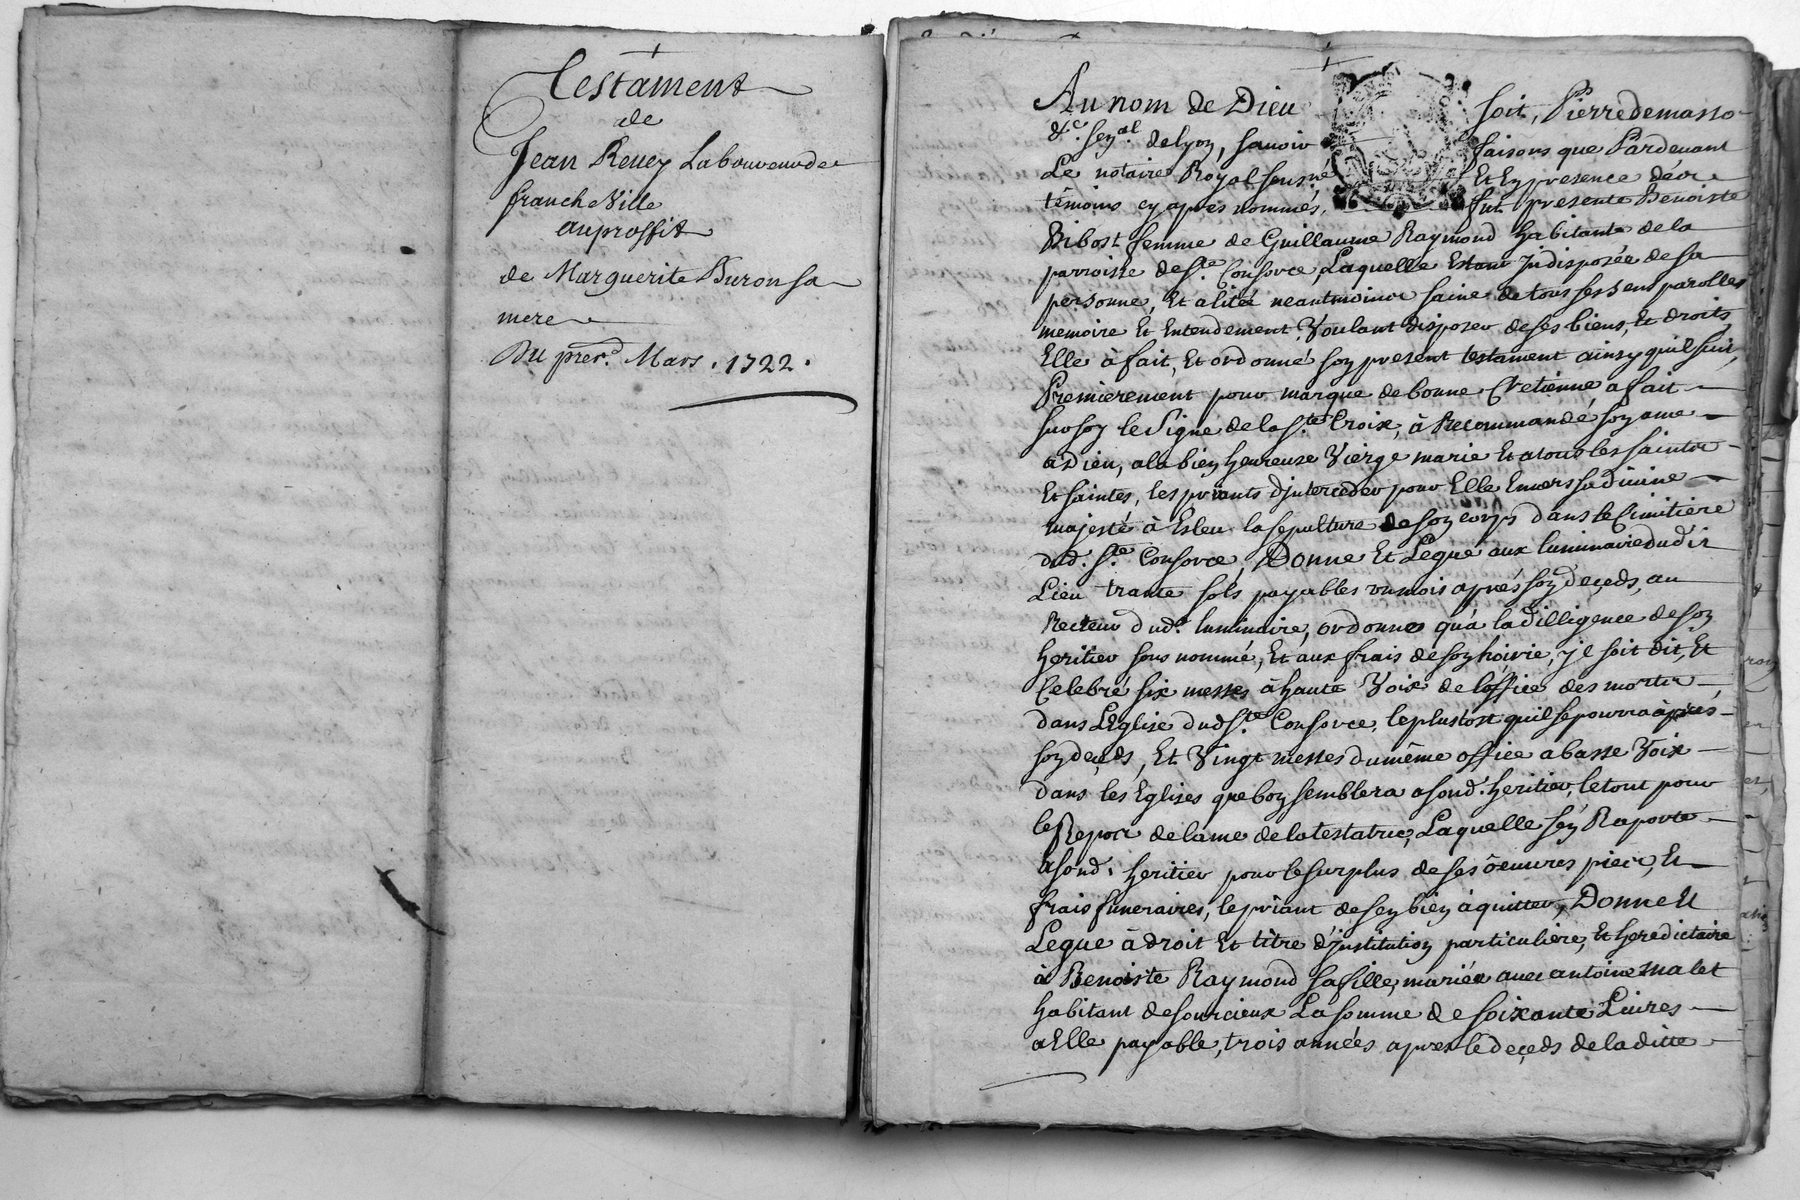 Testament
de
Jean Revey Laboureur de
francheville
au proffit
de Marguerite Buron sa
mere
Du prer. Mars. 1722.
Au nom de Dieu soit, Pierre demasso
&c. sen.al de lyon, savoir faisons que Pardevant
Le notaire Royal sousné Et En presence des
témoins cy apres nommés, fut presente Benoiste
Bibost femme de Guillaume Raymond habitante de la
parroisse de Ste. Consorce, Laquelle Estant Indisposée de sa
personne, Et alitée neantmoinor saine de tous ses sens parolles
memoire Et Entendement, Voulant disposer de ses biens, Et droits
Elle à fait, Et ordonné son present testament ainsy quil suit,
Premierement pour marque de bonne Cretienne, a fait
sur soy le Signe de la Ste. Croix, à Recommandé son ame
a Dieu, a la bien heureuse Vierge marie Et a tous les saints
Et saintes, les priants d'jnterceder pour Elle Envers sa divine
majesté à Esleu la sepulture de son corps dans le Cimitiere
dud. Ste. Consorce, Donne Et Legue aux luminaire dudit
Lieu trante sols payables un mois après son deceds, au
Recteur dud. luminaire, ordonne qu'à la dilligence de son
heritier sous nommé, Et aux frais de son hoirie, jl soit dit, Et
Celebré six messes à haute Voix de l'office des morts
dans L'Eglise dud Ste. Consorce, le plustost quil se pourra apres
son deceds, Et Vingt messes du même office a basse Voix
dans les Eglises que bon semblera a sond. heritier, le tout pour
le Repos de lame de la testatrice, Laquelle s'en Raporte
a sond. heritier pour le surplus de ses oeuvres pies, Et
frais funeraires, le priant de s'en bien aquitter, Donne Et
Legue à droit Et titre d'jnstitution particuliere, Et heredictaire
à Benoiste Raymond sa fille, mariée avec antoine malet
habitant de sourcieux La somme de soixante Livres
a Elle payable, trois années apres le deceds de la ditte